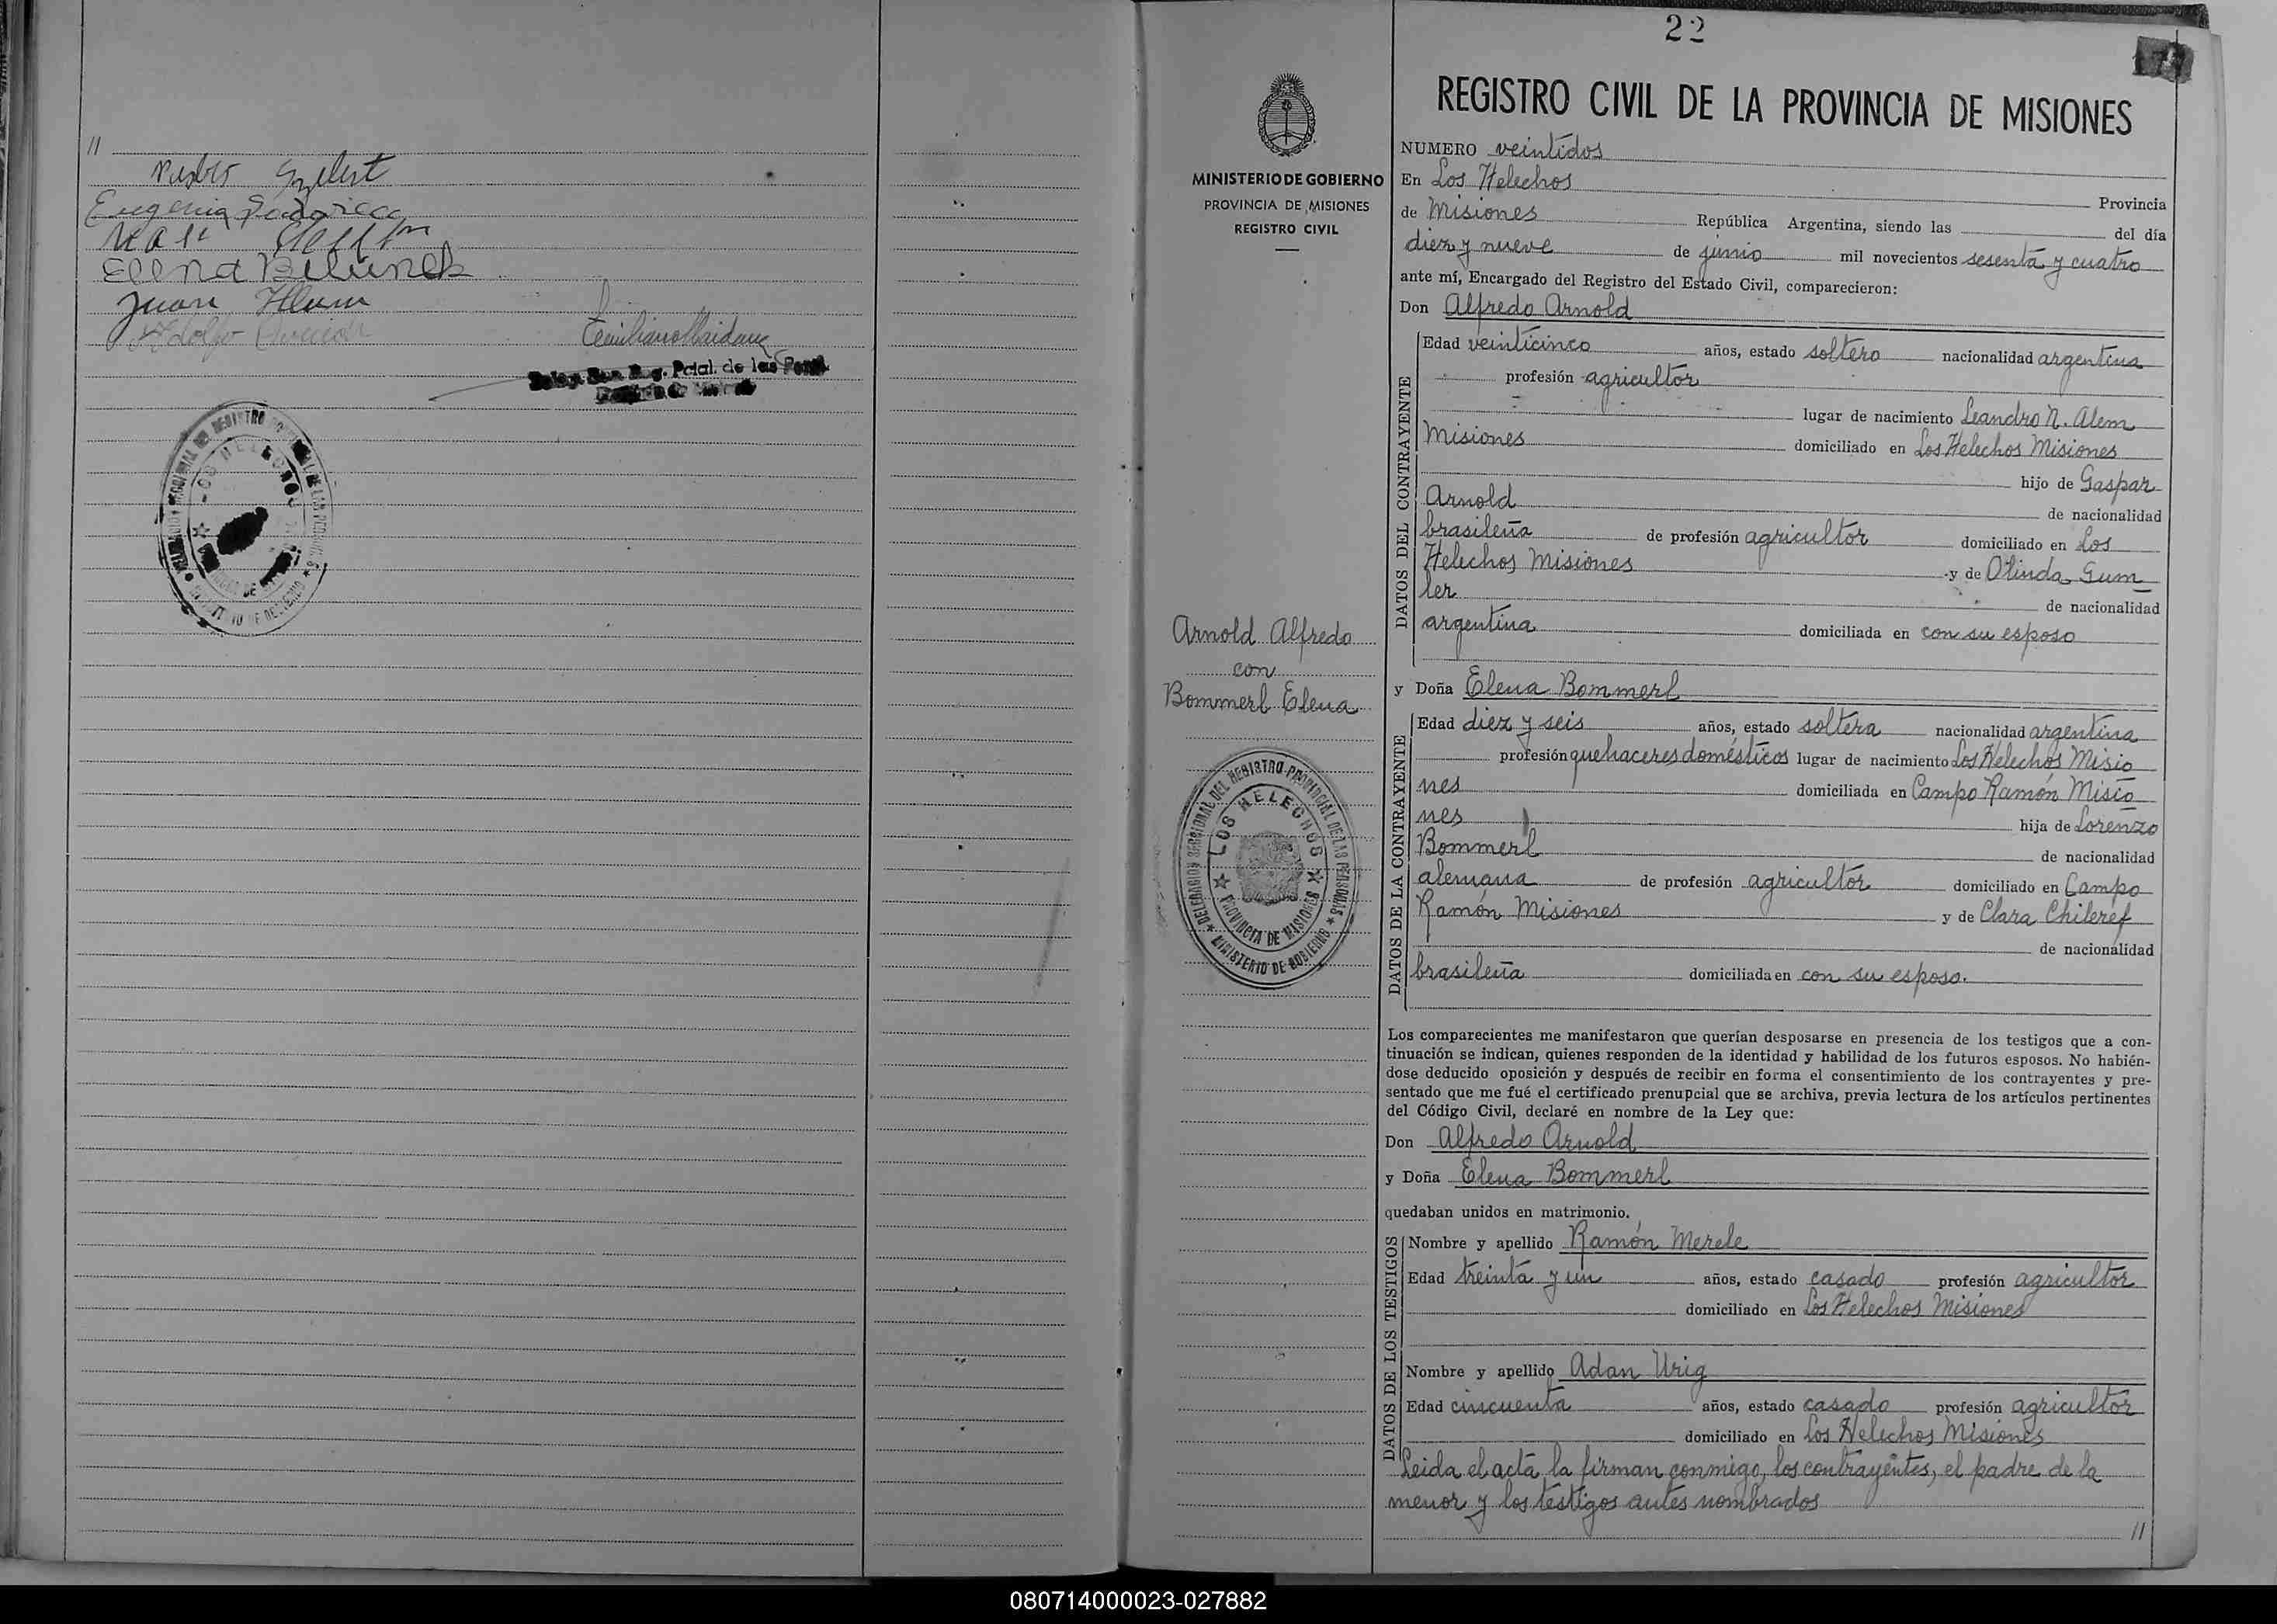 //
Eugenia
Elena
Juan
Emiliano Maidana
Reg. Pcial. de las Pers.
22
REGISTRO CIVIL DE LA PROVINCIA DE MISIONES
MINISTERIO DE GOBIERNO
PROVINCIA DE MISIONES
REGISTRO CIVIL
NUMERO veintidos
En Los Helechos
Provincia
de Misiones República Argentina, siendo las del día
diez y nueve de junio mil novecientos sesenta y cuatro
ante mí, Encargado del Registro del Estado Civil, comparecieron:
Don Alfredo Arnold
DATOS DEL CONTRAYENTE
Edad veinticinco años, estado soltero nacionalidad argentina
profesión agricultor
lugar de nacimiento Leandro N. Alem
Misiones domiciliado en Los Helechos Misiones
hijo de Gaspar
Arnold de nacionalidad
brasileña de profesión agricultor domiciliado en Los
Helechos Misiones y de Olinda Gum
ler de nacionalidad
argentina domiciliada en con su esposo
Arnold Alfredo
con
Bommerl Elena
y Doña Elena Bommerl
DATOS DE LA CONTRAYENTE
Edad diez y seis años, estado soltera nacionalidad argentina
profesión quehaceres domésticos lugar de nacimiento Los Helechos Misio
nes domiciliada en Campo Ramón Misio
nes hija de Lorenzo
Bommerl de nacionalidad
alemana de profesión agricultor domiciliado en Campo
Ramón Misiones y de Clara Chileref
de nacionalidad
brasileña domiciliada en con su esposo.
DELEGACION SECCIONAL DEL REGISTRO PROVINCIAL DE LAS PERSONAS
LOS HELECHOS
PROVINCIA DE MISIONES
MINISTERIO DE GOBIERNO
Los comparecientes me manifestaron que querían desposarse en presencia de los testigos que a con-
tinuación se indican, quienes responden de la identidad y habilidad de los futuros esposos. No habién-
dose deducido oposición y después de recibir en forma el consentimiento de los contrayentes y pre-
sentado que me fué el certificado prenupcial que se archiva, previa lectura de los artículos pertinentes
del Código Civil, declaré en nombre de la Ley que:
Don Alfredo Arnold
y Doña Elena Bommerl
quedaban unidos en matrimonio.
DATOS DE LOS TESTIGOS
Nombre y apellido Ramón Merele
Edad treinta y un años, estado casado profesión agricultor
domiciliado en Los Helechos Misiones
Nombre y apellido Adan Urig
Edad cincuenta años, estado casado profesión agricultor
domiciliado en Los Helechos Misiones
Leida el acta la firman conmigo, los contrayentes, el padre de la
menor y los testigos antes nombrados
//
080714000023-027882